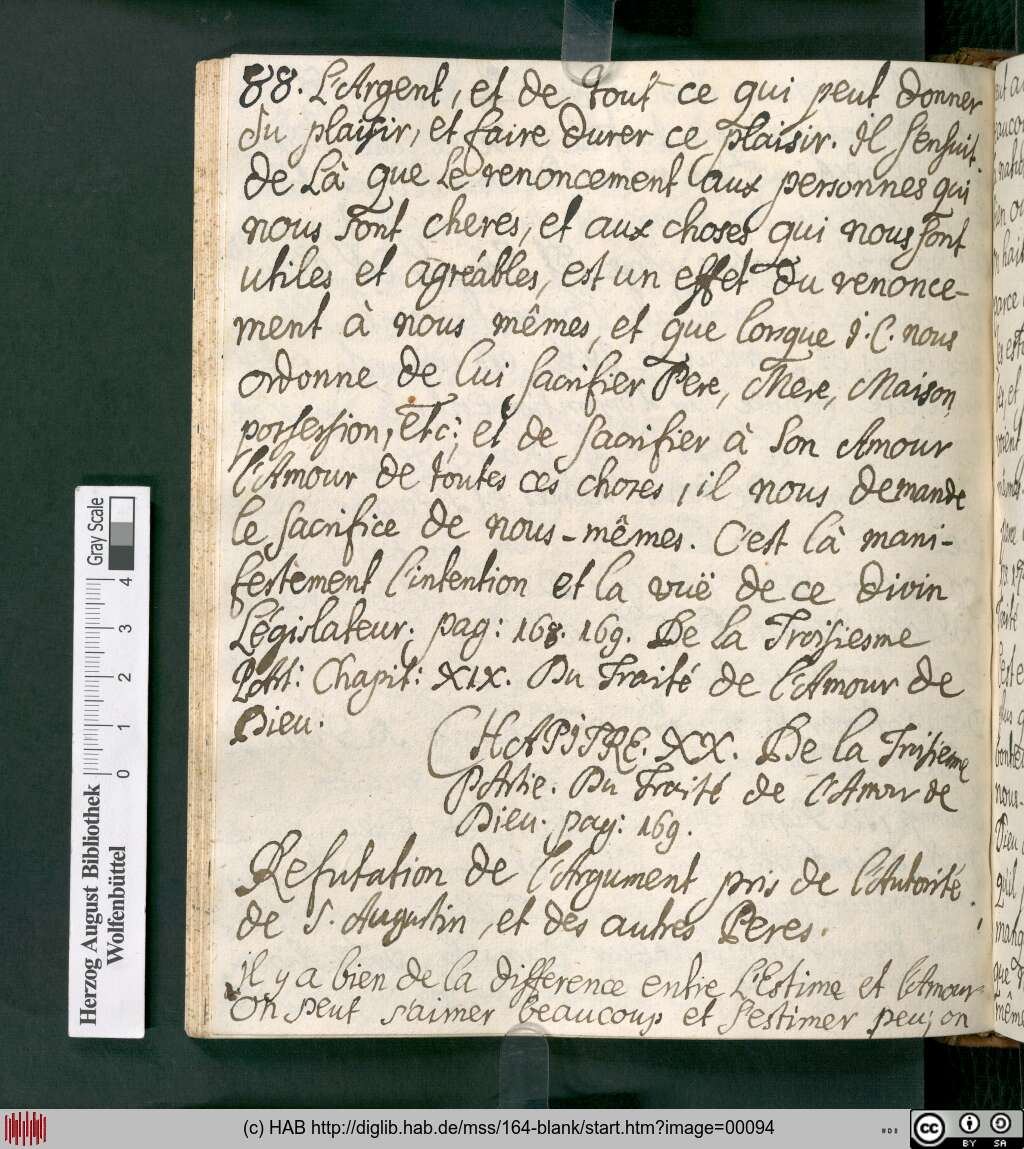 88. L'Argent, et de tout ce qui peut donner
du plaisir, et faire durer ce plaisir. il s'ensuit
de là que le renoncement aux personnes qui
nous sont cheres, et aux choses qui nous sont
utiles et agréables, est un effet du renonce-
ment à nous mêmes, et que lorsque J. C. nous
ordonne de lui sacrifier Pere, Mere, Maison
possession, etc; et de sacrifier à son Amour
l'Amour de toutes ces choses, il nous demande
le sacrifice de nous-mêmes. C'est là mani-
festement l'intention et la vuë de ce divin
Législateur. pag: 168. 169. De la Troisiesme
Part: Chapit: XIX. Du Traité de l'Amour de
Dieu.
CHAPITRE. XX. De la Troisieme
Partie. Du Traité de l'Amour de
Dieu. pag: 169.
Refutation de l'Argument pris de l'Autorité
de S. Augustin, et des autres Peres.
il y a bien de la difference entre l'Estime et l'Amour
On peut s'aimer beaucoup et s'estimer peu; on
Herzog August Bibliothek
Wolfenbüttel
0 1 2 3 4
Gray Scale
(c) HAB http://diglib.hab.de/mss/164-blank/start.htm?image=00094
cc BY SA